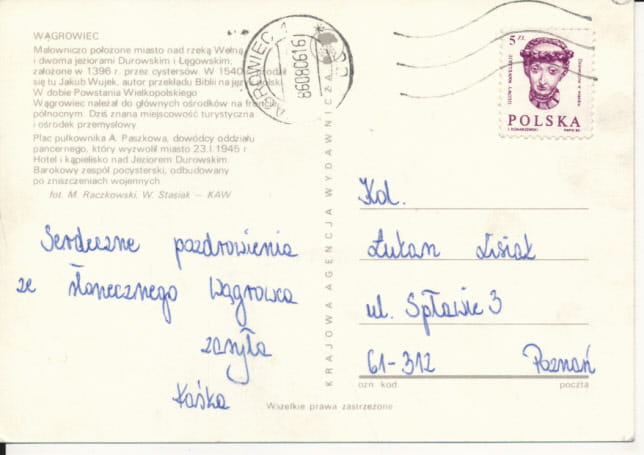 WĄGROWIEC
Malowniczo położone miasto nad rzeką Wełną
i dwoma jeziorami Durowskim i Łęgowskim,
założone w 1396 r. przez cystersów. W 1540
się tu Jakub Wujek, autor przekładu Biblii na język polski.
W dobie Powstania Wielkopolskiego
Wągrowiec należał do głównych ośrodków na froncie
północnym. Dziś znana miejscowość turystyczna
i ośrodek przemysłowy
Plac pułkownika A. Paszkowa, dowódcy oddziału
pancernego, który wyzwolił miasto 23.I.1945 r
Hotel i kąpielisko nad Jeziorem Durowskim.
Barokowy zespół pocysterski, odbudowany
po zniszczeniach wojennych
fot. M. Raczkowski, W. Stasiak — KAW
Serdeczne pozdrowienia
ze słonecznego Wągrowca
zasyła
Kaśka
KRAJOWA AGENCJA WYDAWNICZA
WĄGROWIEC 1
5 ZŁ
POLSKA
Kol.
Łukasz Lisiak
ul. Spławie 3
61-312 Poznań
ozn kod poczta
Wszelkie prawa zastrzeżone